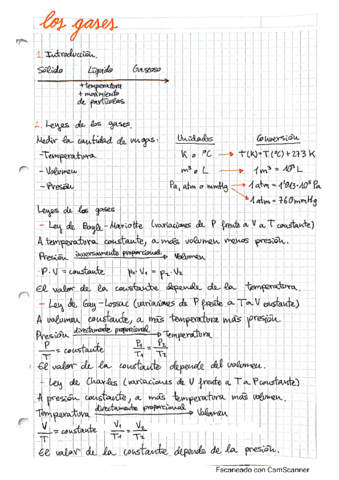 los gases
1. Introducción.
Sólido Líquido Gaseoso
+ temperatura
+ movimiento
de partículas
2. Leyes de los gases.
Medir la cantidad de un gas: Unidades Conversión
- Temperatura K o ºC → T(K)=T(ºC)+273 K
- Volumen m³ o L → 1m³ = 10³ L
- Presión Pa, atm o mmHg → 1 atm = 1'013·10⁵ Pa
→ 1 atm = 760 mmHg
Leyes de los gases
- Ley de Boyle-Mariotte (variaciones de P frente a V a T constante)
A temperatura constante, a más volumen menos presión.
Presión inversamente proporcional → Volumen
P·V = constante P₁·V₁ = P₂·V₂
El valor de la constante depende de la temperatura.
- Ley de Gay-Lussac (variaciones de P frente a T a V constante)
A volumen constante, a más temperatura más presión.
Presión directamente proporcional → Temperatura
P/T = constante P₁/T₁ = P₂/T₂
El valor de la constante depende del volumen.
- Ley de Charles (variaciones de V frente a T a P constante)
A presión constante, a más temperatura más volumen.
Temperatura directamente proporcional → Volumen
V/T = constante V₁/T₁ = V₂/T₂
El valor de la constante depende de la presión.
Escaneado con CamScanner